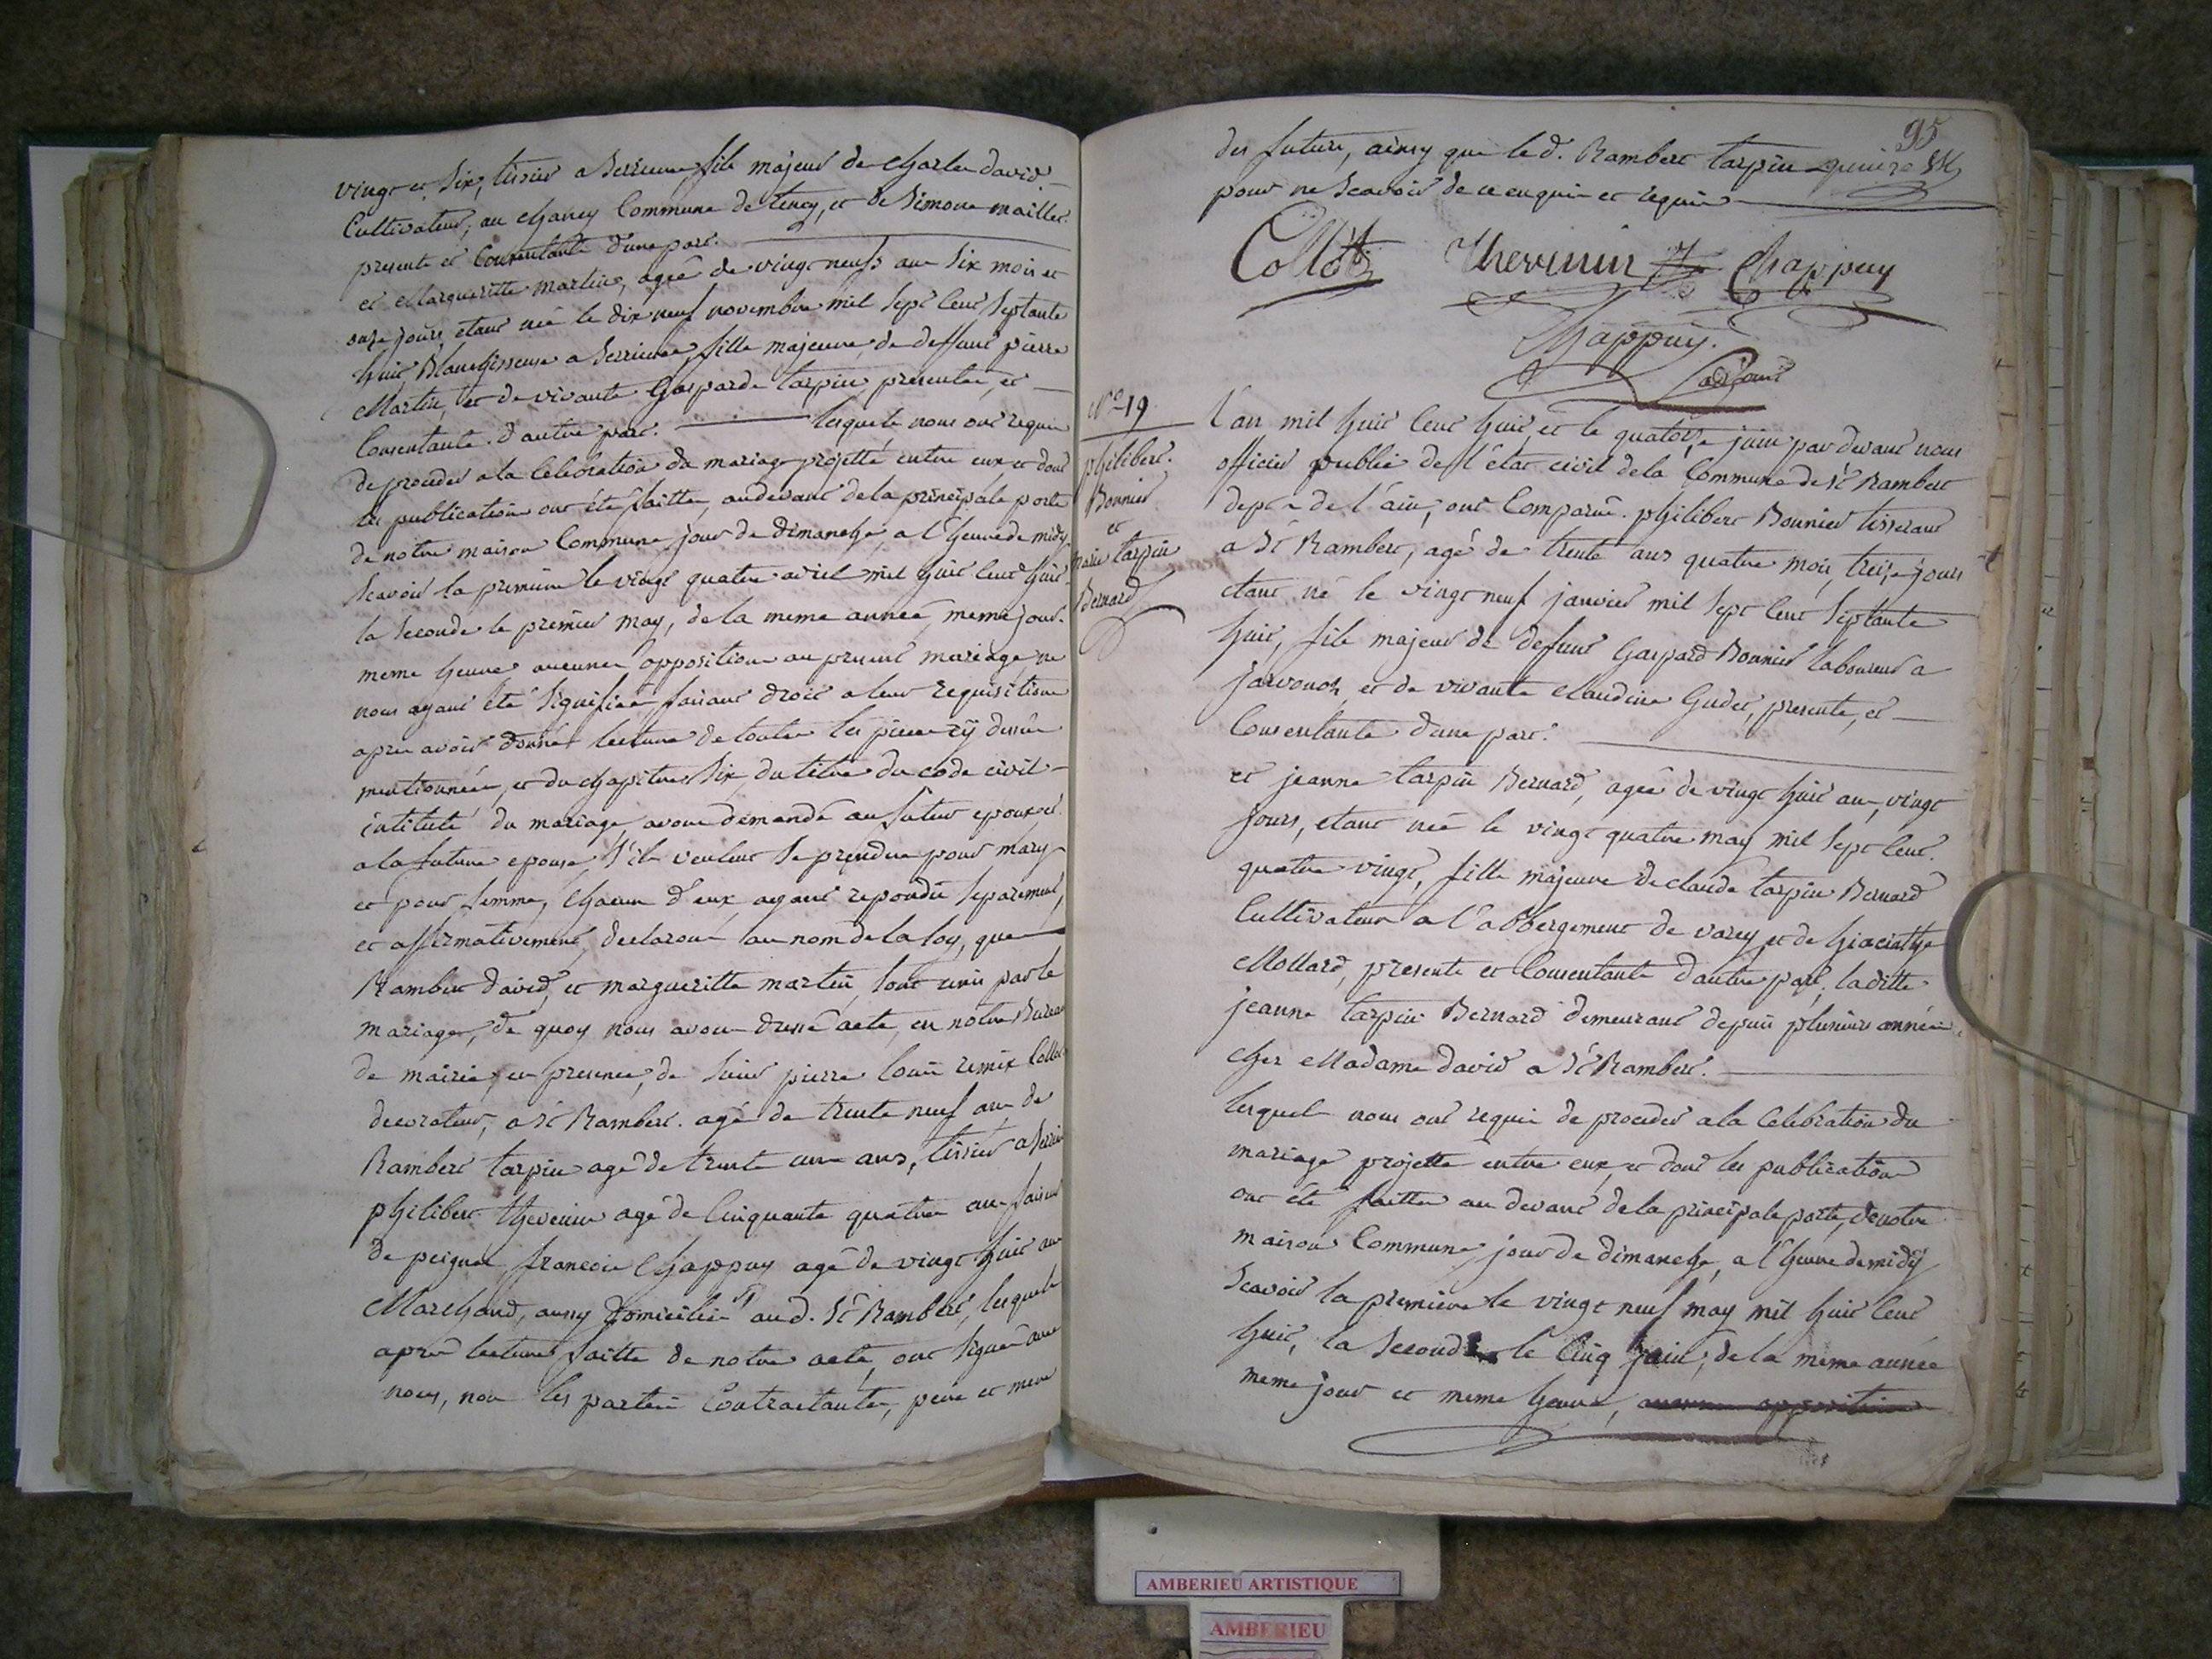 vingt et six, tissier a Serrieres fils majeur de charles david
Cultivateur, au chaney Commune de tency, et de Simone maillet
presente et Consentante d'une part.
et Margueritte martin, agée de vingt neufs ans six mois et
onze jours, etant née le dix neuf novembre mil sept cent septante
huit, Blanchisseuse a Serrieres, fille majeure de deffunt pierre
Martin, et de vivante Gasparde tarpin, presentes, et
Consentante d'autre part. lesquels nous ont requis
de proceder a la Celebration du mariage projetté entre eux et dont
les publications ont été faittes, au devant de la principale porte
de notre maison Commune, jour de dimanche, a l'heure de midy
Scavoir la premiere le vingt quatre avril mil huit cent huit
la Seconde le premier may, de la meme année, meme jour
meme heure aucunes opposition au present mariage ne
nous ayant été Signifiée, faisant droit a leur requisitions
apres avoir donné lecture de toutes les pieces cy dessus
mentionnées, et du chapitre Six du titre du code civil
intitulé du mariage, avons demandé au futur epoux et
a la future epouse s'ils veulent Se prendre pour mary
et pour femme, chacun d'eux ayant repondu Separement
et affirmativement, declarons au nom de la loy, que
Rambert david, et margueritte martin, sont unis par le
mariage, de quoy nous avons dressé acte, en notre Bureau
de mairie, en presence, de sieur pierre louis remix Collot
decorateur, a St Rambert. agé de trente neuf ans de
Rambert tarpin agé de trente un ans, tissier a Serrieres
philibert thevenin agé de Cinquante quatre ans faiseur
de peignes, francois Chappuy agé de vingt huit ans
Marchand, aussy domiciliés aud. St Rambert, lesquels
après lecture faitte de notre acte, ont signé avec
nous, non les parties Contractantes, pere et mere
95
des futurs, ainsy que led. Rambert tarpin
pour ne Scavoir de ce enquis et requis
Collot Thevenin Chappuy
Chappuy.
No 19
philibert
Bonnier
et
tarpin
Bernard
L'an mil huit cent huit, et le quatorze juin par devant nous
officier public de l'état civil de la Commune de St Rambert
dept de l'ain, ont Comparus. philibert Bonnier tisserant
a St Rambert, agé de trente ans quatre mois treize jours
etant né le vingt neuf janvier mil sept cent septante
huit, fils majeur de defunt Gaspard Bonnier laboureur a
Javornoz, et de vivante claudine Gudet, presente, et
Consentante d'une part.
et jeanne tarpin Bernard, agée de vingt huit ans, vingt
jours, etant née le vingt quatre may mil sept cent
quatre vingt, fille majeure de claude tarpin Bernard
Cultivateur a l'abbergement de varey et de hiacinthe
Mollard, presents et Consentants d'autre part; laditte
jeanne tarpin Bernard demeurant depuis plusieurs années
chez Madame david a St Rambert.
lesquels nous ont requis de proceder a la Celebration du
mariage projetté entre eux, et dont les publications
ont été faittes au devant de la principale porte, de notre
maison Commune, jour de dimanche, a l'heure de midy
Scavoir la premiere le vingt neuf may mil huit cent
huit, la Seconde le Cinq juin, de la meme année
meme jour et meme heure, aucune opposition
AMBERIEU ARTISTIQUE
AMBERIEU